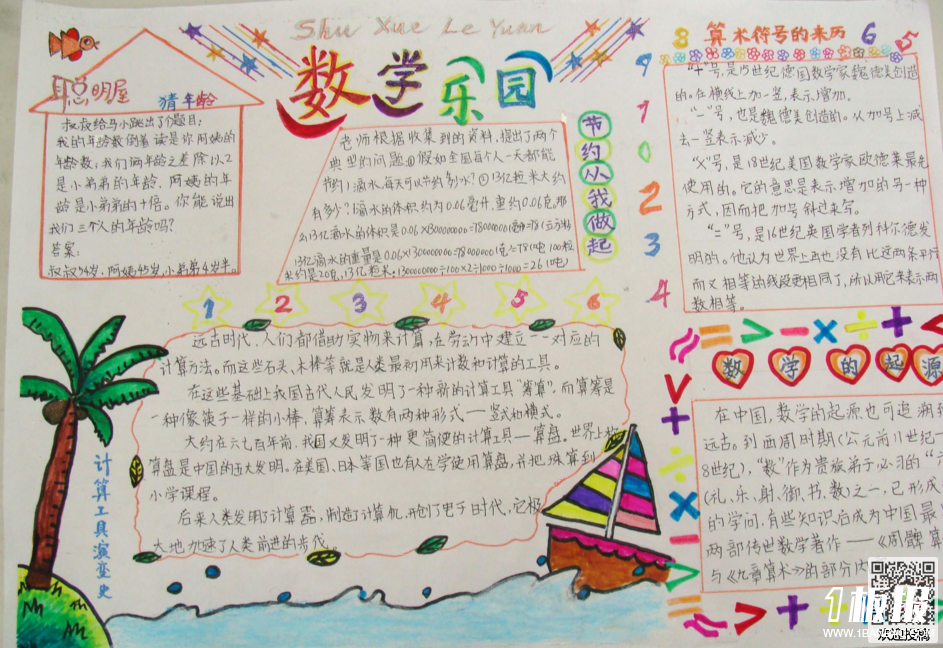 Shu Xue Le Yuan
数学乐园
聪明屋
猜年龄
叔叔给马小跳出了个题目：
我的年龄数倒着读是你阿姨的
年龄数；我们俩年龄之差除以2
是小弟弟的年龄，阿姨的年
龄是小弟弟的十倍。你能说出
我们三个人的年龄吗？
答案：
叔叔54岁、阿姨45岁，小弟弟4岁半。
老师根据收集到的资料，提出了两个
典型的问题：①假如全国每个人一天都能
节约1滴水，每天可以节约多少水？②13亿粒米大约
有多少？1滴水的体积约为0.06毫升，重约0.06克，那
么13亿滴水的体积是0.06×1300000000=78000000
13亿滴水的重量是0.06×1300000000=78000000克=78吨 100粒
米约是20克，13亿粒米：1300000000÷100×2÷1000÷1000=26(吨)
节约从我做起
9
1
0
2
3
4
8
算术符号的来历
6
5
"+"号，是15世纪德国数学家魏德美创造
的。在横线上加一竖，表示增加。
"-"号，也是魏德美创造的。从加号上减
去一竖表示减少。
"×"号，是18世纪美国数学家欧德莱最先
使用的。它的意思是表示增加的另一种
方式，因而把加号斜过来写。
"="号，是16世纪英国学者列科尔德发
明的。他认为世界上再也没有比这两条平行
而又相等的线段更相同了，所以用它来表示两
数相等。
1 2 3 4 5 6
远古时代，人们都借助实物来计算，在劳动中建立一一对应的
计算方法。而这些石头、木棒等就是人类最初用来计数和计算的工具。
在这些基础上我国古代人民发明了一种新的计算工具"筹算"，而算筹是
一种像筷子一样的小棒，算筹表示数有两种形式——竖式和横式。
大约在六七百年前，我国又发明了一种更简便的计算工具——算盘。世界上称
算盘是中国的五大发明。在美国、日本等国也有人在学使用算盘，并把珠算列
小学课程。
后来人类发明了计算器，制造了计算机，开创了电子时代，它极
大地加速了人类前进的步伐。
计算工具演变史
≈ = > − × ÷ + <
数学的起源
∨
+
÷
×
−
>
在中国，数学的起源也可追溯到
远古。到西周时期(公元前11世纪—
8世纪)，"数"作为贵族弟子必习的"六
(礼、乐、射、御、书、数)之一，已形成
的学问，有些知识后成为中国最
两部传世数学著作——《周髀算
与《九章算术》的部分内
= ≈ > + ÷
1板报
WWW.1BANBAO.COM